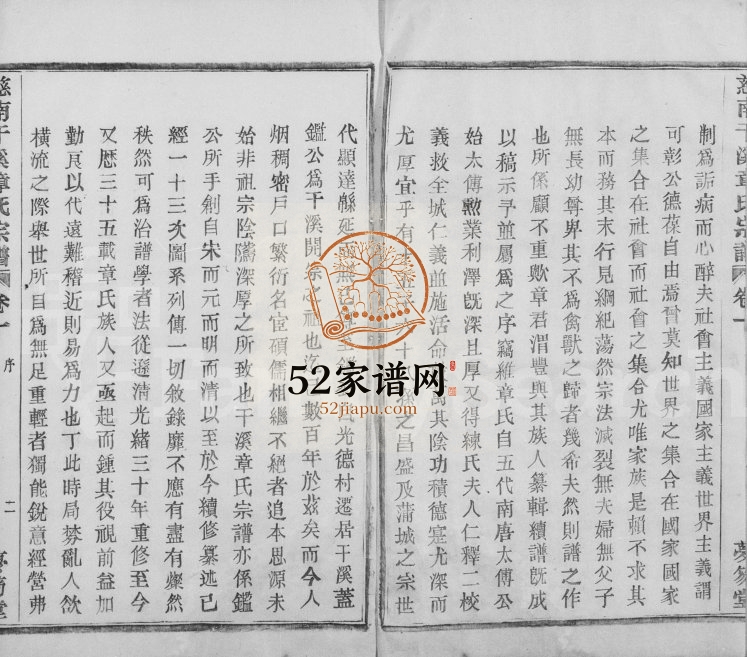 慈南干溪章氏宗譜
卷一
制爲詬病而心醉夫社會主義國家主義世界主義謂
可彰公德葆自由焉詧莫知世界之集合在國家國家
之集合在社會而社會之集合尤唯家族是賴不求其
本而務其末行見綱紀蕩然宗法滅裂無夫婦無父子
無長幼尊卑其不爲禽獸之歸者幾希夫然則譜之作
也所係顧不重歟章君渭豐與其族人纂輯續譜旣成
以稿示予並屬爲之序竊維章氏自五代南唐太傅公
始太傅勲業利澤旣深且厚又得練氏夫人仁釋二校
義救全城仁義並施活命其陰功積德寔尤深而
尤厚宜乎有之昌盛及蒲城之宗世
代顯達緜延光德村遷居干溪蓋
鑑公爲干溪開宗之祖也迄數百年於茲矣而今人
烟稠密戶口繁衍名宦碩儒相繼不絕者追本思源未
始非祖宗陰隲深厚之所致也干溪章氏宗譜亦係鑑
公所手創自宋而元而明而清以至於今續修纂述已
經一十三次圖系列傳一切敘錄靡不應有盡有燦然
秩然可爲治譜學者法從遜清光緒三十年重修至今
又歴三十五載章氏族人又亟起而鍾其役視前益加
勤良以代遠難稽近則易爲力也丁此時局蜠亂人欲
橫流之際舉世所目爲無足重輕者獨能銳意經營弗
慈南干溪章氏宗譜
卷一
序
二
52家谱网
52jiapu.com